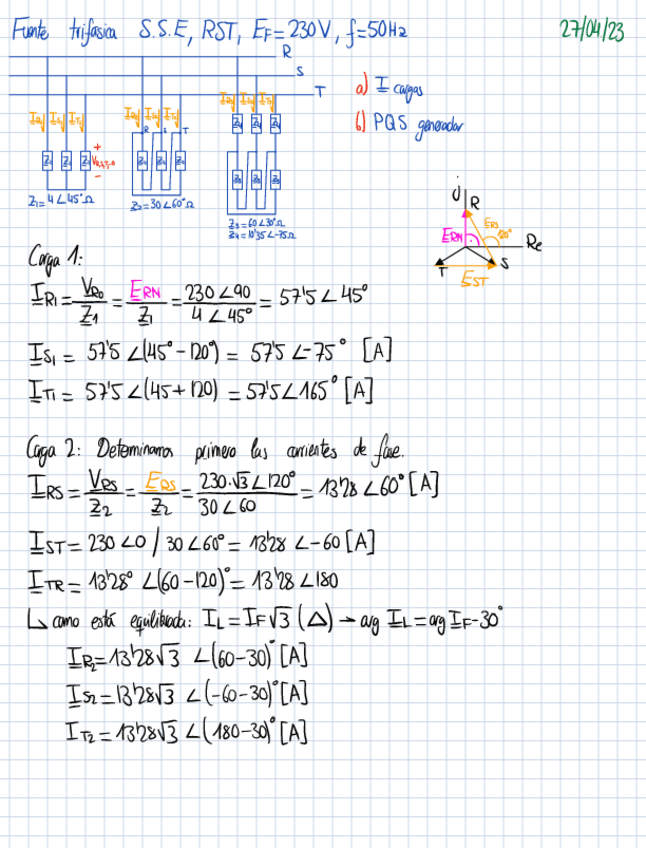 Fuente trifásica S.S.E, RST, E_F=230V, f=50Hz
27/04/23
R
S
T
a) I cargas
b) PQS generador
I_R1 I_S1 I_T1
I_R2 I_S2 I_T2
I_R3 I_S3 I_T3
R S T
Z1 Z1 Z1
+
V_R,S,T-0
-
Z2 Z2 Z2
Z3 Z3 Z3
Z4 Z4 Z4
Z1=4∠45°Ω
Z2=30∠60°Ω
Z3=60∠30°Ω
Z4=10'35∠-75Ω
j
R
E_RS
120°
E_RN
Re
T
S
E_ST
Carga 1:
I_R1 = V_R0/Z1 = E_RN/Z1 = 230∠90/4∠45° = 57'5∠45°
I_S1 = 57'5∠(45°-120°) = 57'5∠-75° [A]
I_T1 = 57'5∠(45+120) = 57'5∠165° [A]
Carga 2: Determinamos primero las corrientes de fase.
I_RS = V_RS/Z2 = E_RS/Z2 = 230·√3∠120°/30∠60 = 13'28∠60° [A]
I_ST = 230∠0 / 30∠60° = 13'28∠-60 [A]
I_TR = 13'28° ∠(60-120)° = 13'28∠180
↳ como está equilibrada: I_L = I_F√3 (Δ) → arg I_L = arg I_F-30°
I_R2 = 13'28√3 ∠(60-30)° [A]
I_S2 = 13'28√3 ∠(-60-30)° [A]
I_T2 = 13'28√3 ∠(180-30)° [A]